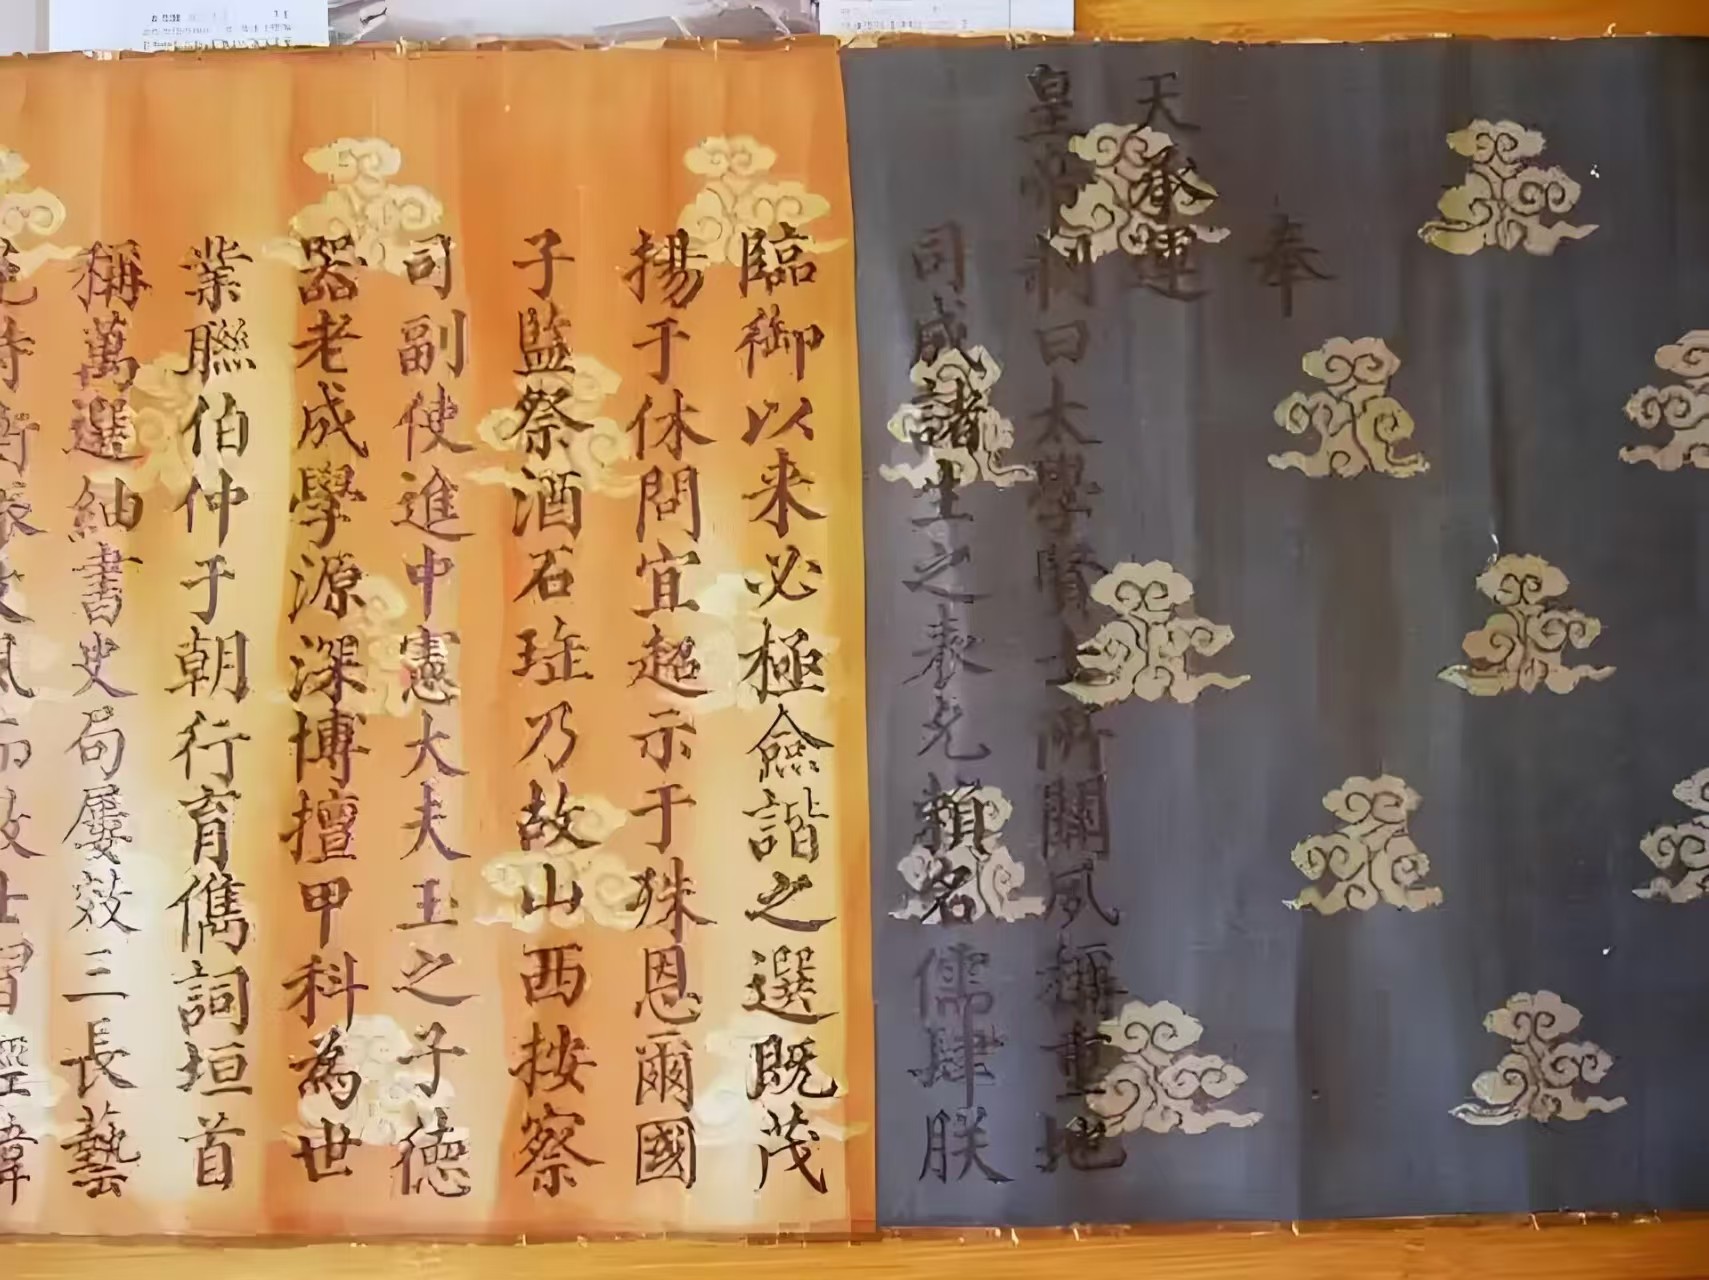 奉
天承運
皇帝制曰太學賢士所關夙稱重地
司成諸生之表尤頼名儒肆朕
臨御以来必極僉諧之選既茂
揚于休問宜超示于殊恩爾國
子監祭酒石珤乃故山西按察
司副使進中憲大夫玉之子德
器老成學源深博擅甲科為世
業聯伯仲于朝行育儁詞垣首
稱萬選紬書史局屢效三長藝